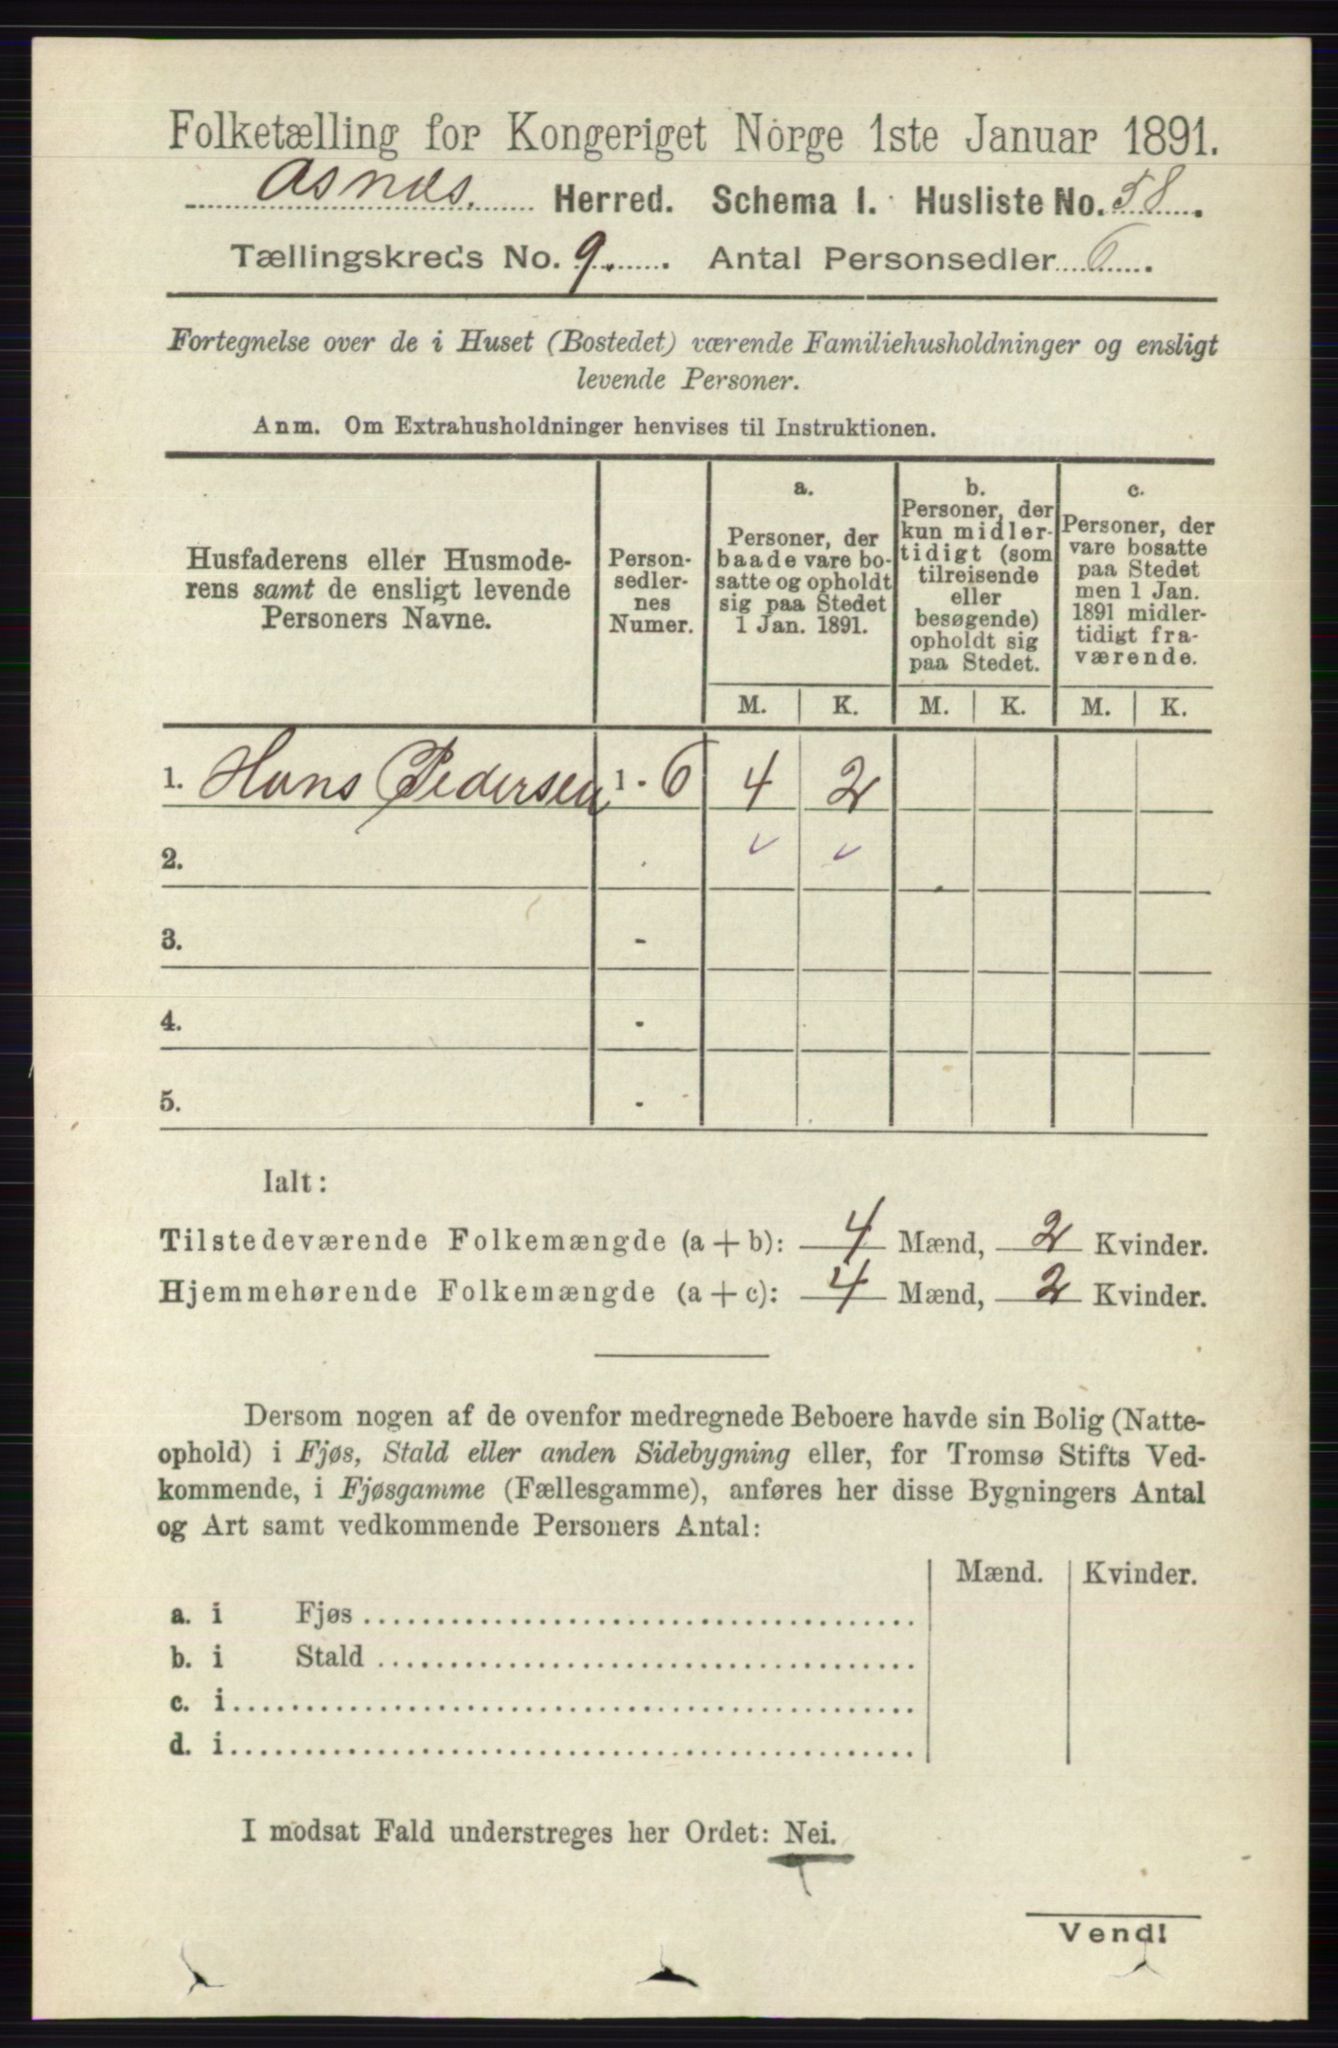 Folketælling for Kongeriget Norge 1ste Januar 1891.
Asnæs. Herred. Schema I. Husliste No. 58
Tællingskreds No. 9. Antal Personsedler 6
Fortegnelse over de i Huset (Bostedet) værende Familiehusholdninger og ensligt
levende Personer.
Anm. Om Extrahusholdninger henvises til Instruktionen.
Husfaderens eller Husmode-
rens samt de ensligt levende
Personers Navne.
Person-
sedler-
nes
Numer.
a.
Personer, der
baade vare bo-
satte og opholdt
sig paa Stedet
1 Jan. 1891.
b.
Personer, der
kun midler-
tidigt (som
tilreisende
eller
besøgende)
opholdt sig
paa Stedet.
c.
Personer, der
vare bosatte
paa Stedet
men 1 Jan.
1891 midler-
tidigt fra-
værende.
M. K. M. K. M. K.
1. Hans Pedersen 1 - 6 4 2
2.
3. -
4. -
5. -
Ialt:
Tilstedeværende Folkemængde (a + b): 4 Mænd, 2 Kvinder.
Hjemmehørende Folkemængde (a + c): 4 Mænd, 2 Kvinder.
Dersom nogen af de ovenfor medregnede Beboere havde sin Bolig (Natte-
ophold) i Fjøs, Stald eller anden Sidebygning eller, for Tromsø Stifts Ved-
kommende, i Fjøsgamme (Fællesgamme), anføres her disse Bygningers Antal
og Art samt vedkommende Personers Antal:
Mænd. Kvinder.
a. i Fjøs
b. i Stald
c. i
d. i
I modsat Fald understreges her Ordet: Nei.
Vend!